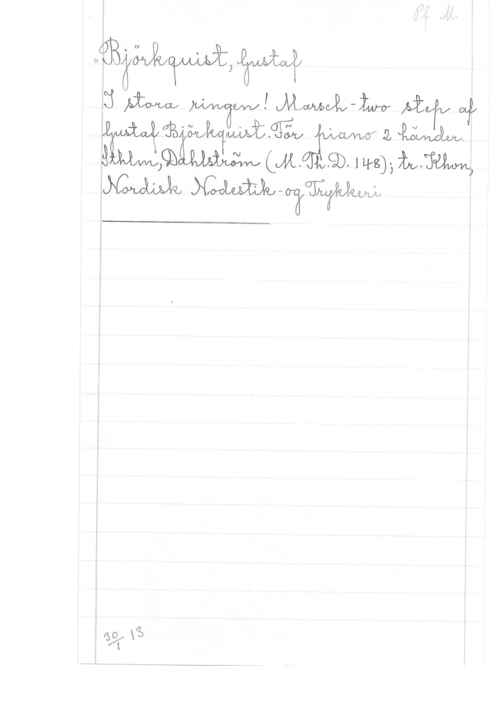 Pf M.
Björkquist, Gustaf
I stora ringen! Marsch-two step af
Gustaf Björkquist. För piano 2 händer.
Sthlm, Dahlström (M. Th. D. 148); tr. Khvn,
Nordisk Nodestik-og Trykkeri
30/1 13